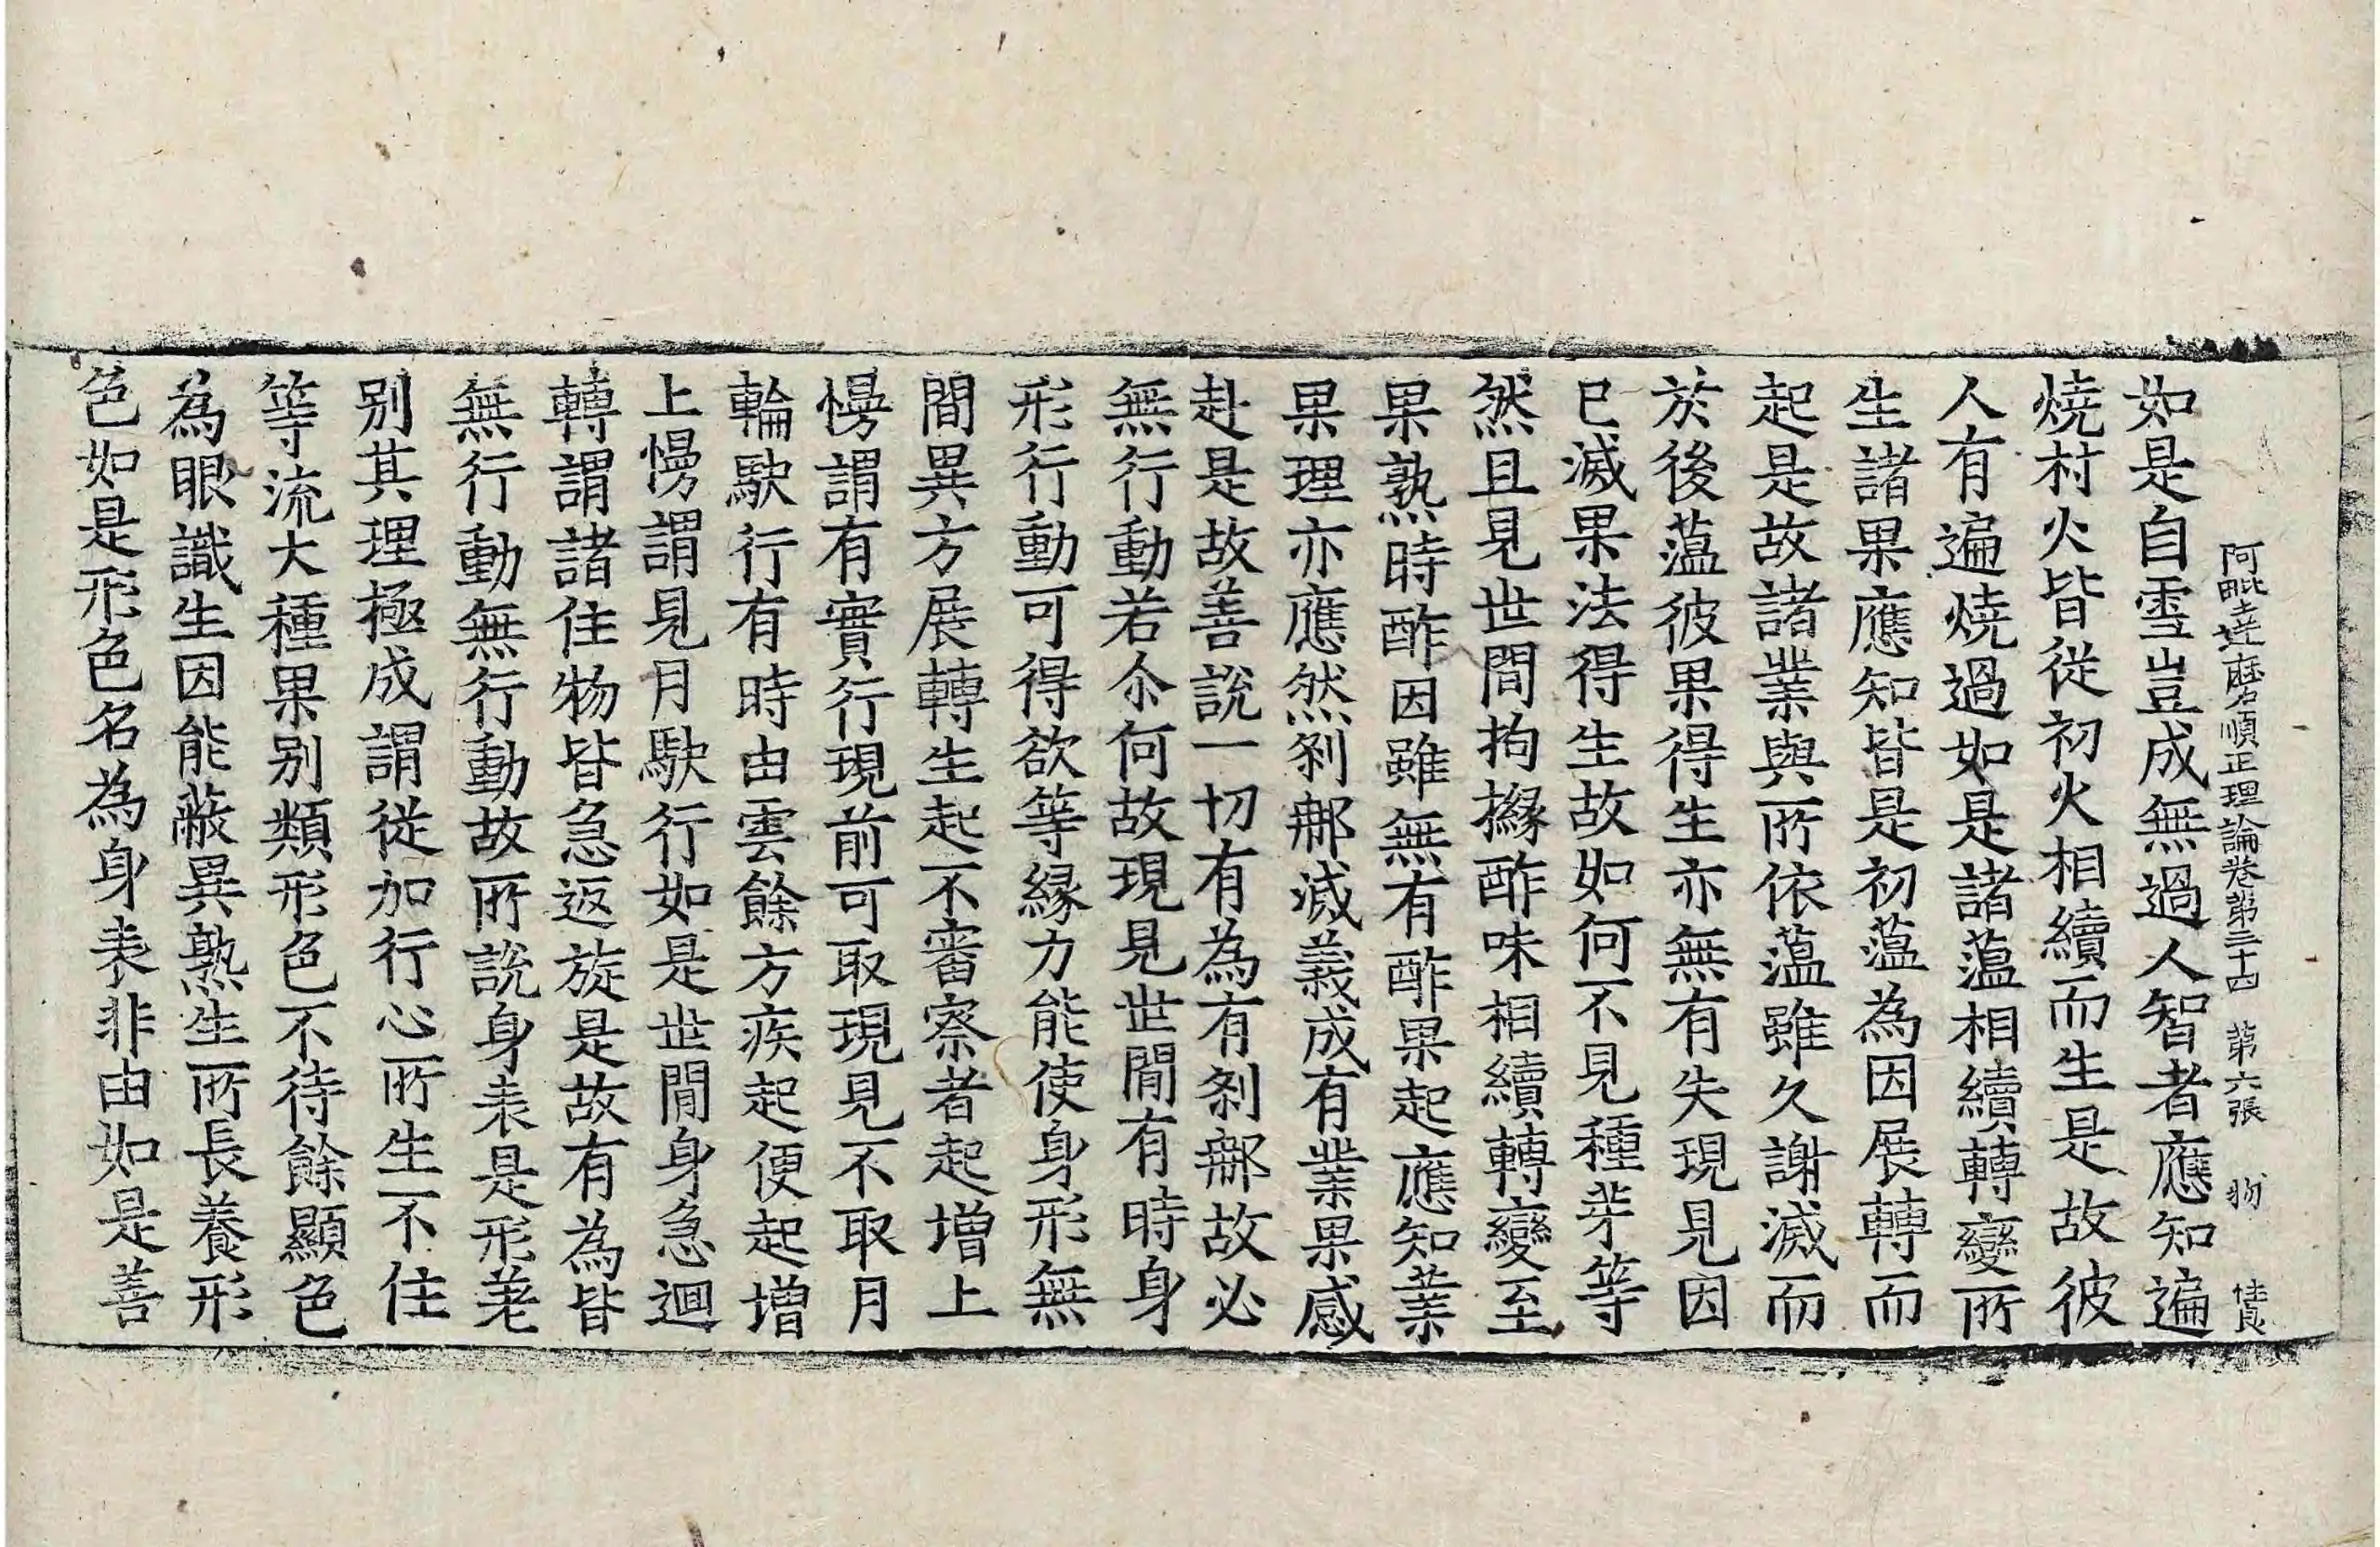 阿毗達磨順正理論卷第三十四 第六張 物
如是自雪豈成無過人智者應知遍
燒村火皆從初火相續而生是故彼
人有遍燒過如是諸蘊相續轉變所
生諸果應知皆是初蘊為因展轉而
起是故諸業與所依蘊雖久謝滅而
於後蘊彼果得生亦無有失現見因
已滅果法得生故如何不見種芽等
然且見世間拘櫞酢味相續轉變至
果熟時酢因雖無有酢果起應知業
果理亦應然剎那滅義成有業果感
赴是故善說一切有為有剎那故必
無行動若尒何故現見世間有時身
形行動可得欲等緣力能使身形無
間異方展轉生起不審察者起增上
慢謂有實行現前可取現見不取月
輪駃行有時由雲餘方疾起便起增
上慢謂見月駃行如是世間身急迴
轉謂諸住物皆急返旋是故有為皆
無行動無行動故所說身表是形差
別其理極成謂從加行心所生不住
等流大種果別類形色不待餘顯色
為眼識生因能蔽異熟生所長養形
色如是形色名為身表非由如是善